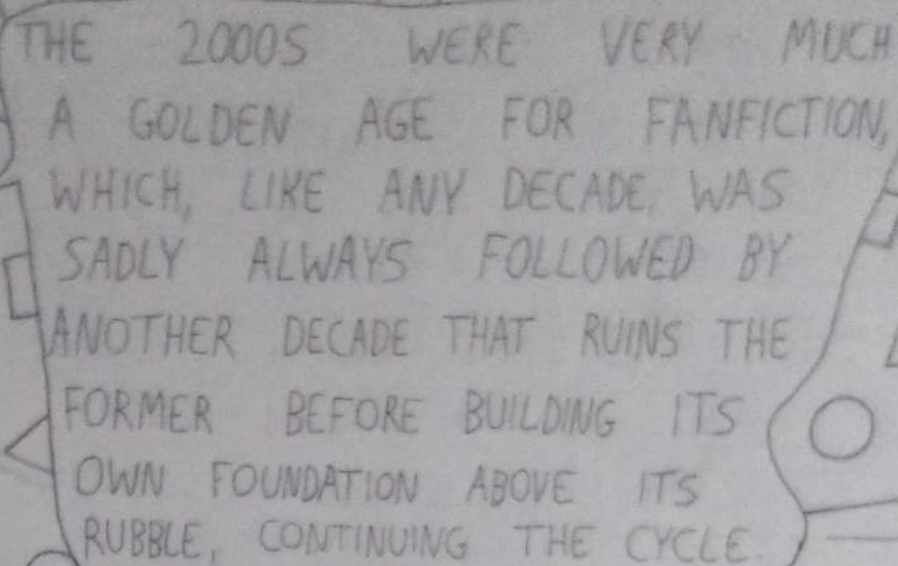 THE 2000S WERE VERY MUCH
A GOLDEN AGE FOR FANFICTION,
WHICH, LIKE ANY DECADE, WAS
SADLY ALWAYS FOLLOWED BY
ANOTHER DECADE THAT RUINS THE
FORMER BEFORE BUILDING ITS
OWN FOUNDATION ABOVE ITS
RUBBLE, CONTINUING THE CYCLE.